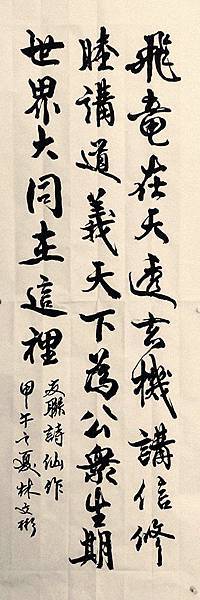 飛竜在天透玄機講信修
睦講道義天下為公衆生期
世界大同在這裡
友聯詩仙作
甲午之夏林文彬